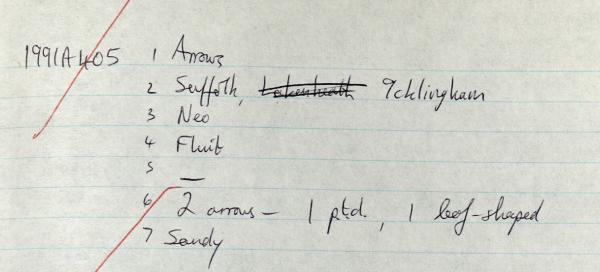 1991A405 1 Arrows
2 Suffolk, Lakenheath Icklingham
3 Neo
4 Flint
5 —
6 2 arrows - 1 ptd, 1 leaf-shaped
7 Sandy